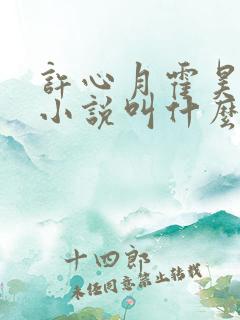 許心月霍昊
小說叫什麼
十四郎
未经同意禁止转载